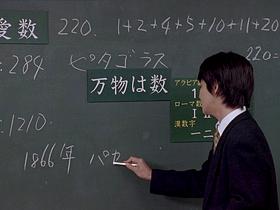 愛数 220. 1+2+4+5+10+11+20
284 ピタゴラス 220=
万物は数
アラビア
1
ローマ数
I
漢数字
一二
1210.
1866年 パガ